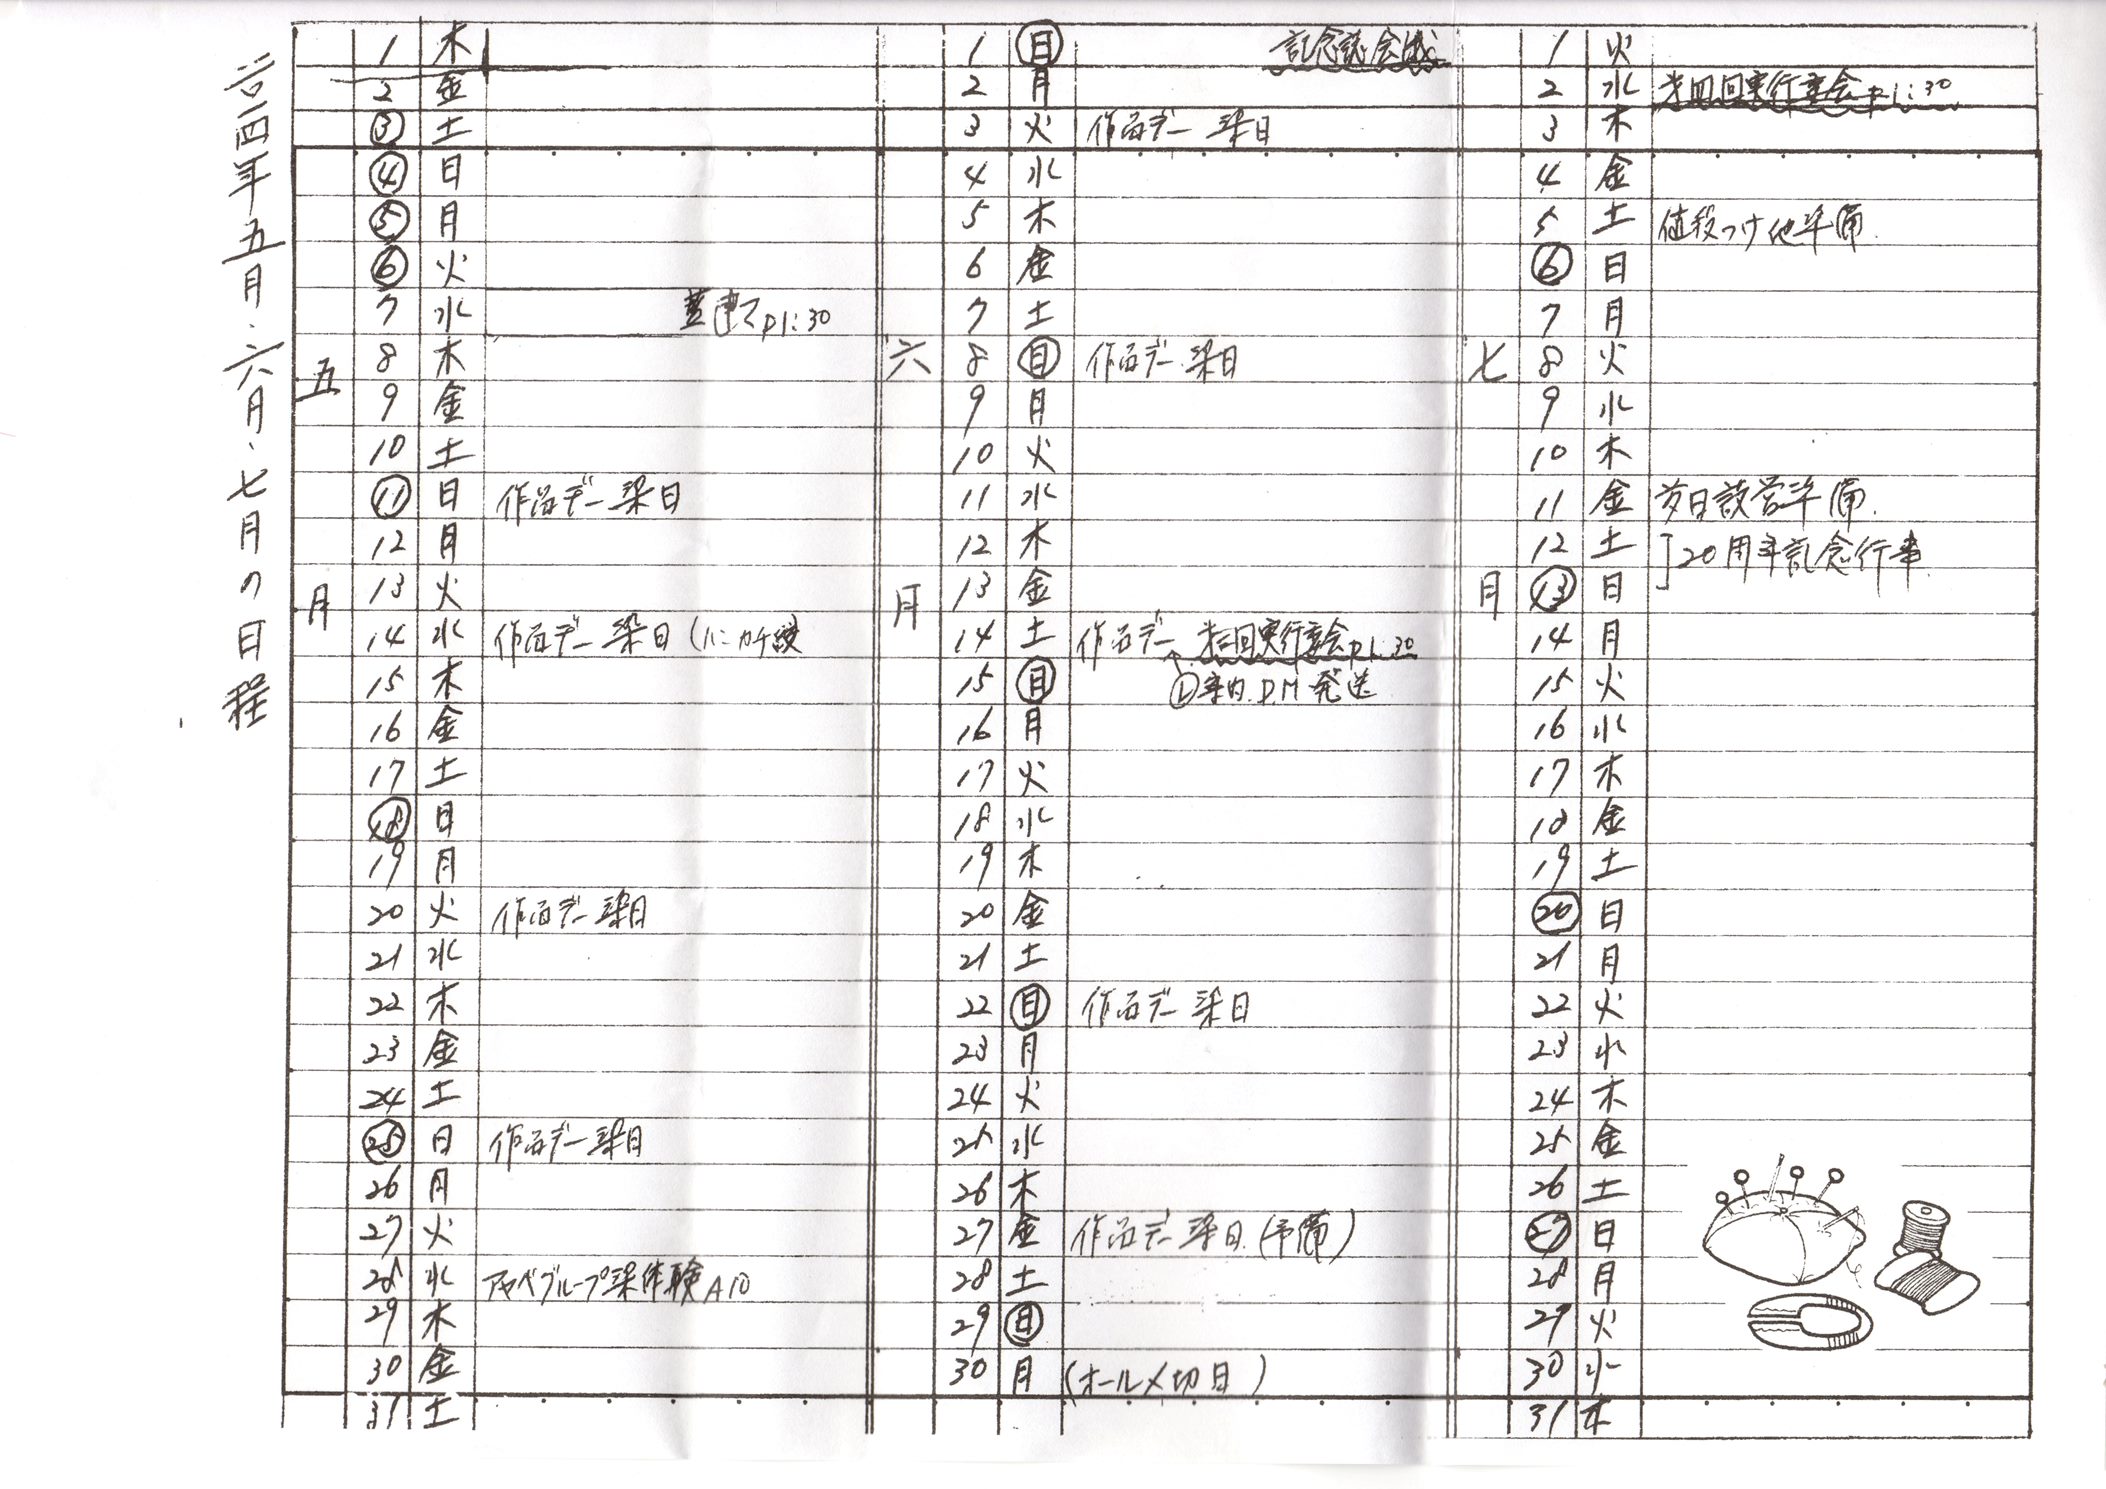 二〇一四年五月・六月・七月の日程
五月
1 木
2 金
3 土
4 日
5 月
6 火
7 水 藍建て P1:30
8 木
9 金
10 土
11 日 作品デー 染日
12 月
13 火
14 水 作品デー 染日 (ハンカチ絞
15 木
16 金
17 土
18 日
19 月
20 火 作品デー 染日
21 水
22 木
23 金
24 土
25 日 作品デー 染日
26 月
27 火
28 水 アヤベグループ染体験 A10
29 木
30 金
31 土
六月
1 日 記念誌会議
2 月
3 火 作品デー 染日
4 水
5 木
6 金
7 土
8 日 作品デー 染日
9 月
10 火
11 水
12 木
13 金
14 土 作品デー 才三回実行委会 P1:30
15 日 案内.DM 発送
16 月
17 火
18 水
19 木
20 金
21 土
22 日 作品デー 染日
23 月
24 火
25 水
26 木
27 金 作品デー 染日.(予備)
28 土
29 日
30 月 (オール〆切日)
七月
1 火
2 水 才四回実行委会 P1:30
3 木
4 金
5 土 値段つけ他準備.
6 日
7 月
8 火
9 水
10 木
11 金 前日設営準備.
12 土 ]20周年記念行事
13 日
14 月
15 火
16 水
17 木
18 金
19 土
20 日
21 月
22 火
23 水
24 木
25 金
26 土
27 日
28 月
29 火
30 水
31 木